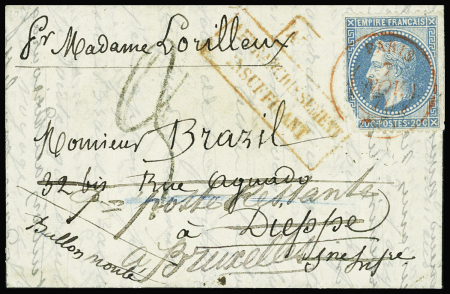 pr Madame Lorilleux
EMPIRE FRANÇAIS
PARIS
AFFRANCHISSEMENT
INSUFFISANT
POSTES
Monsieur Brazil
32 bis Rue Aguado
poste restante
à Dieppe
à Bruxelles
Ballon monté